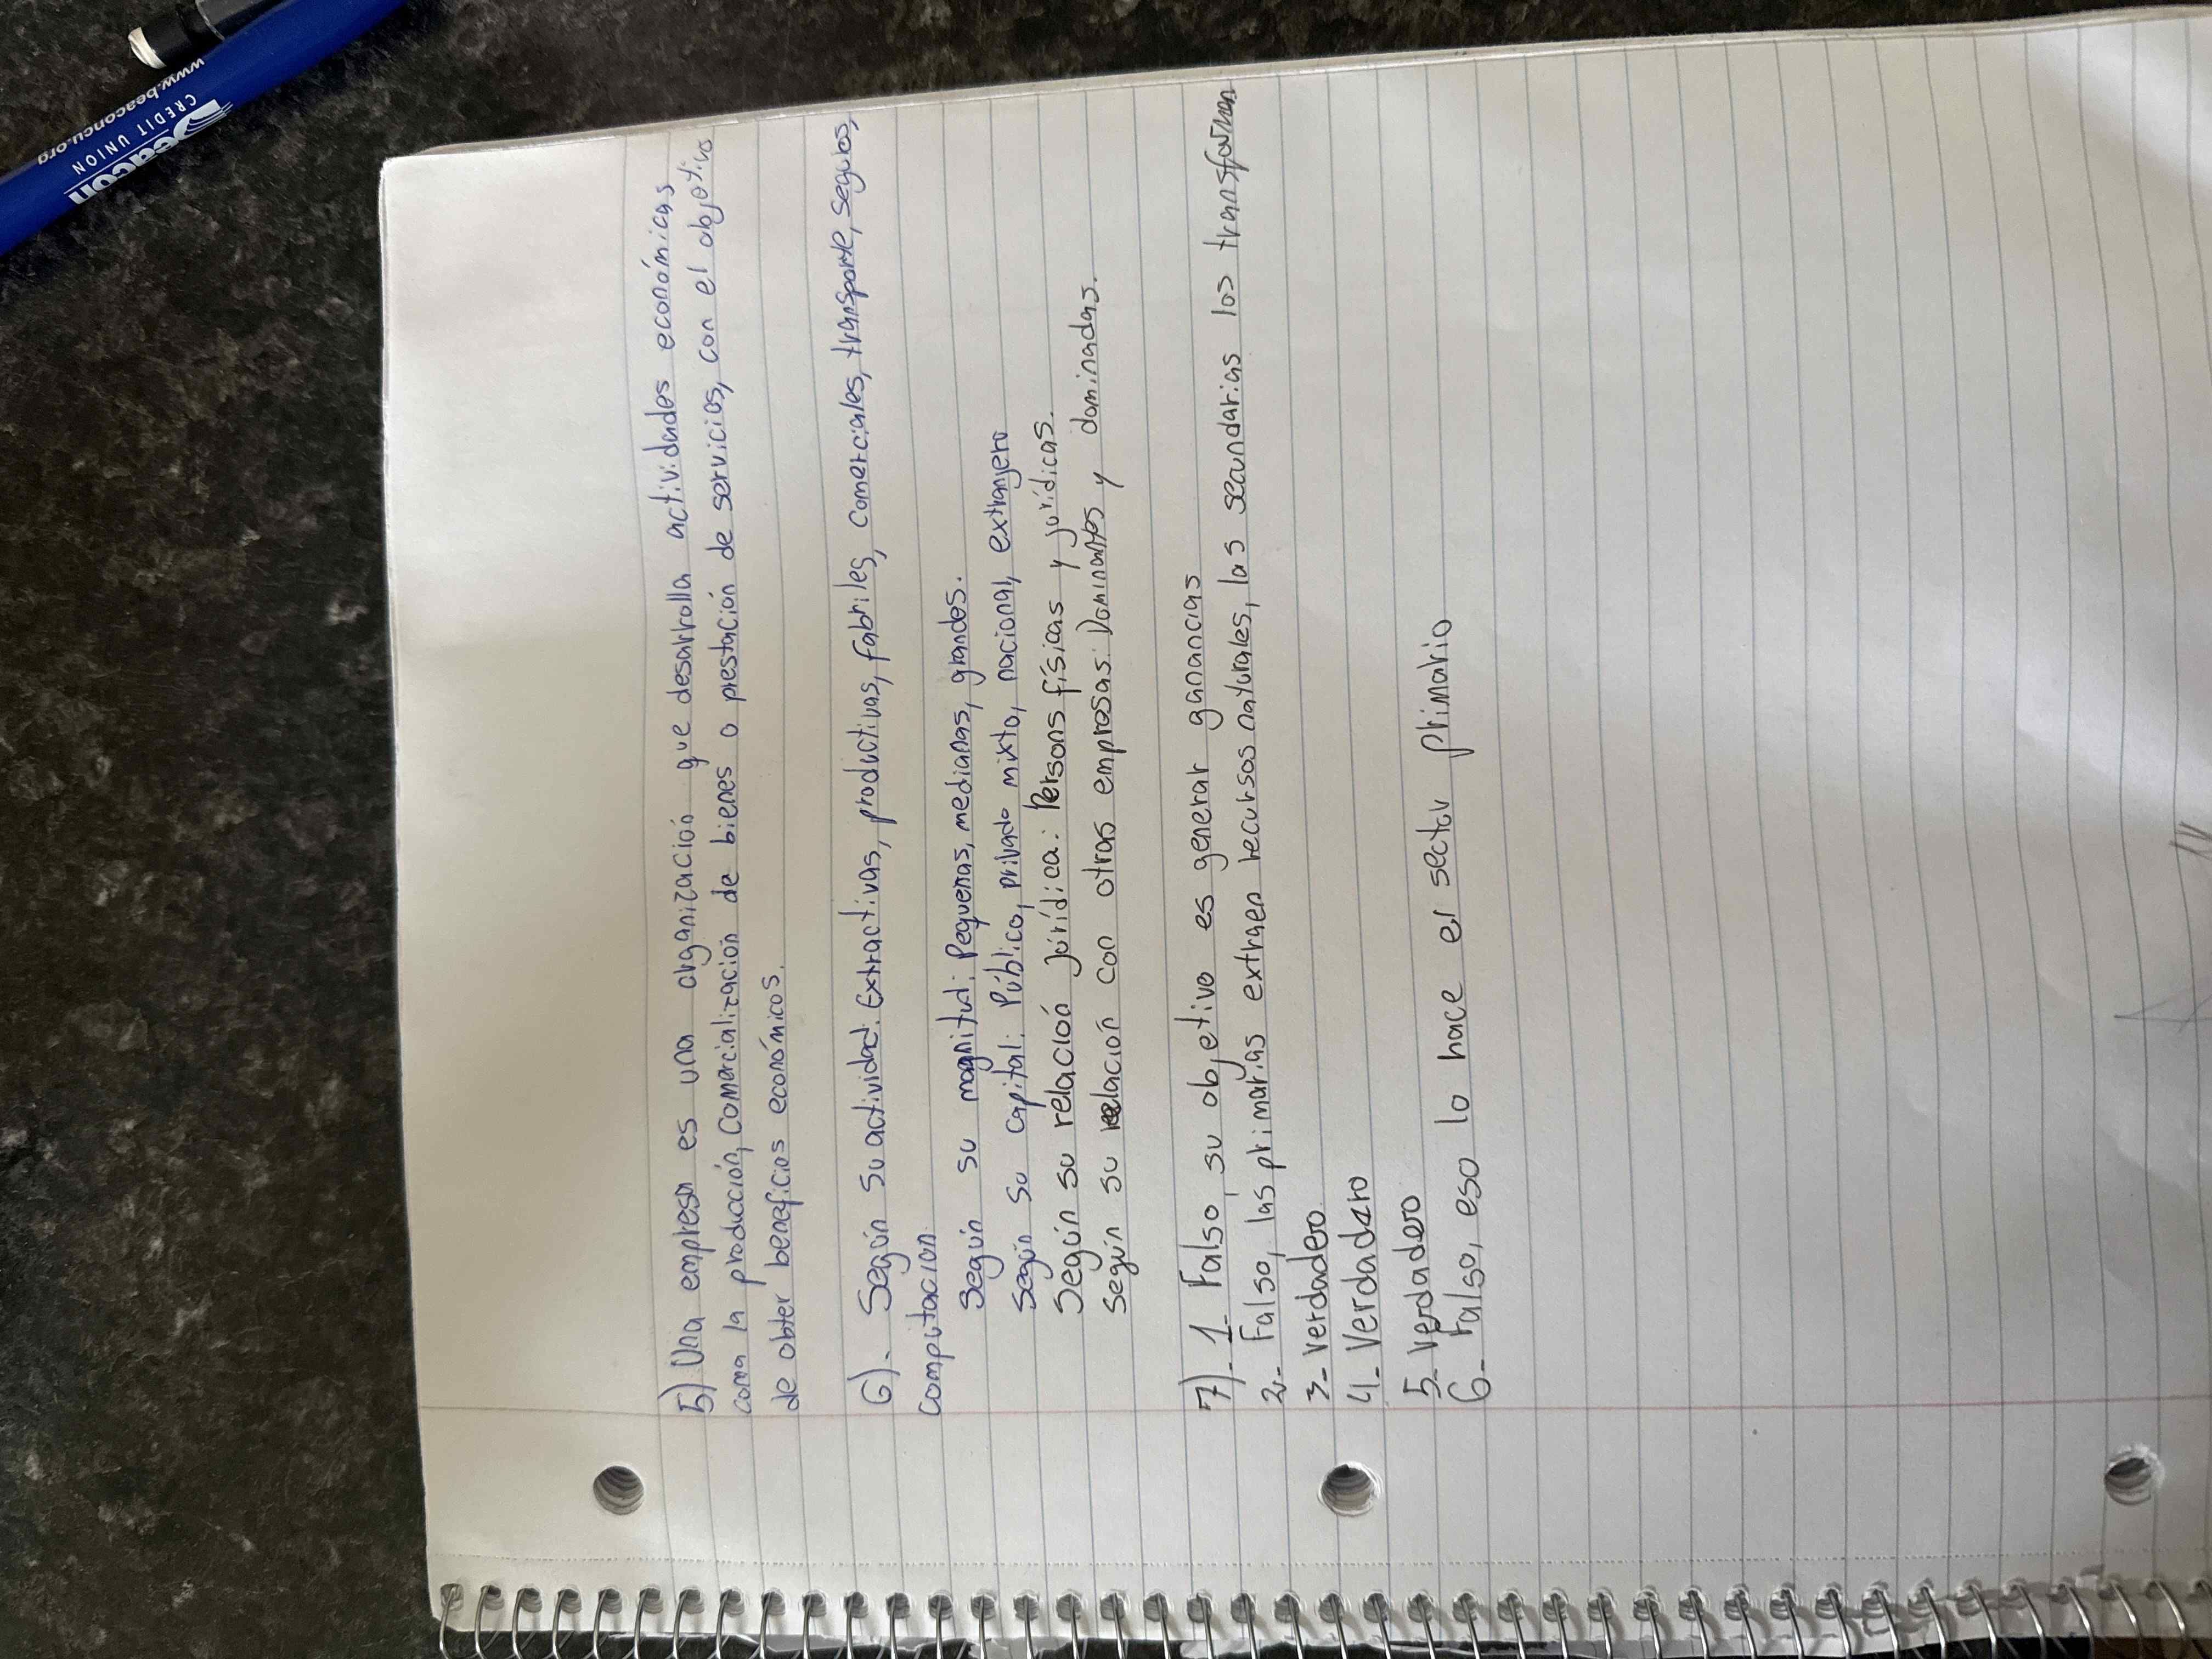 Beacon
CREDIT UNION
www.beaconcu.org
5) Una empresa es una organización que desarrolla actividades económicas
como la producción, comercialización de bienes o prestación de servicios, con el objetivo
de obter beneficios económicos.
6)- Según su actividad: Extractivas, productivas, fabriles, comerciales, transporte, segubos,
computacion
Según su magnitud: Pequenas, medianas, grandes.
Según su capital: Público, privado mixto, nacional, extranjero
Según su relación jurídica: Persons físicas y jurídicas.
Según su relación con otras empresas: Dominantes y dominadas.
7)- 1 Falso, su objetivo es generar ganancias
2- Falso, las primarias extraen recursos naturales, las secundarias los transforman
3- Verdadero
4- Verdadero
5- Verdadero
6- Falso, eso lo hace el sector primario